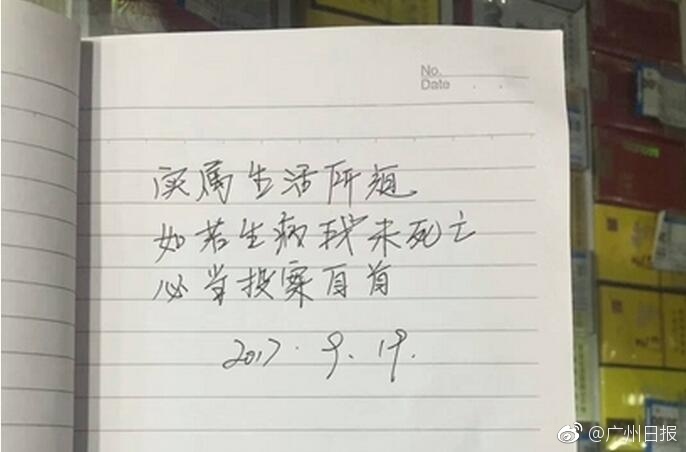 No.
Date . .
实属生活所迫
如若生病我未死亡
必当投案自首
2017.9.19.
@广州日报